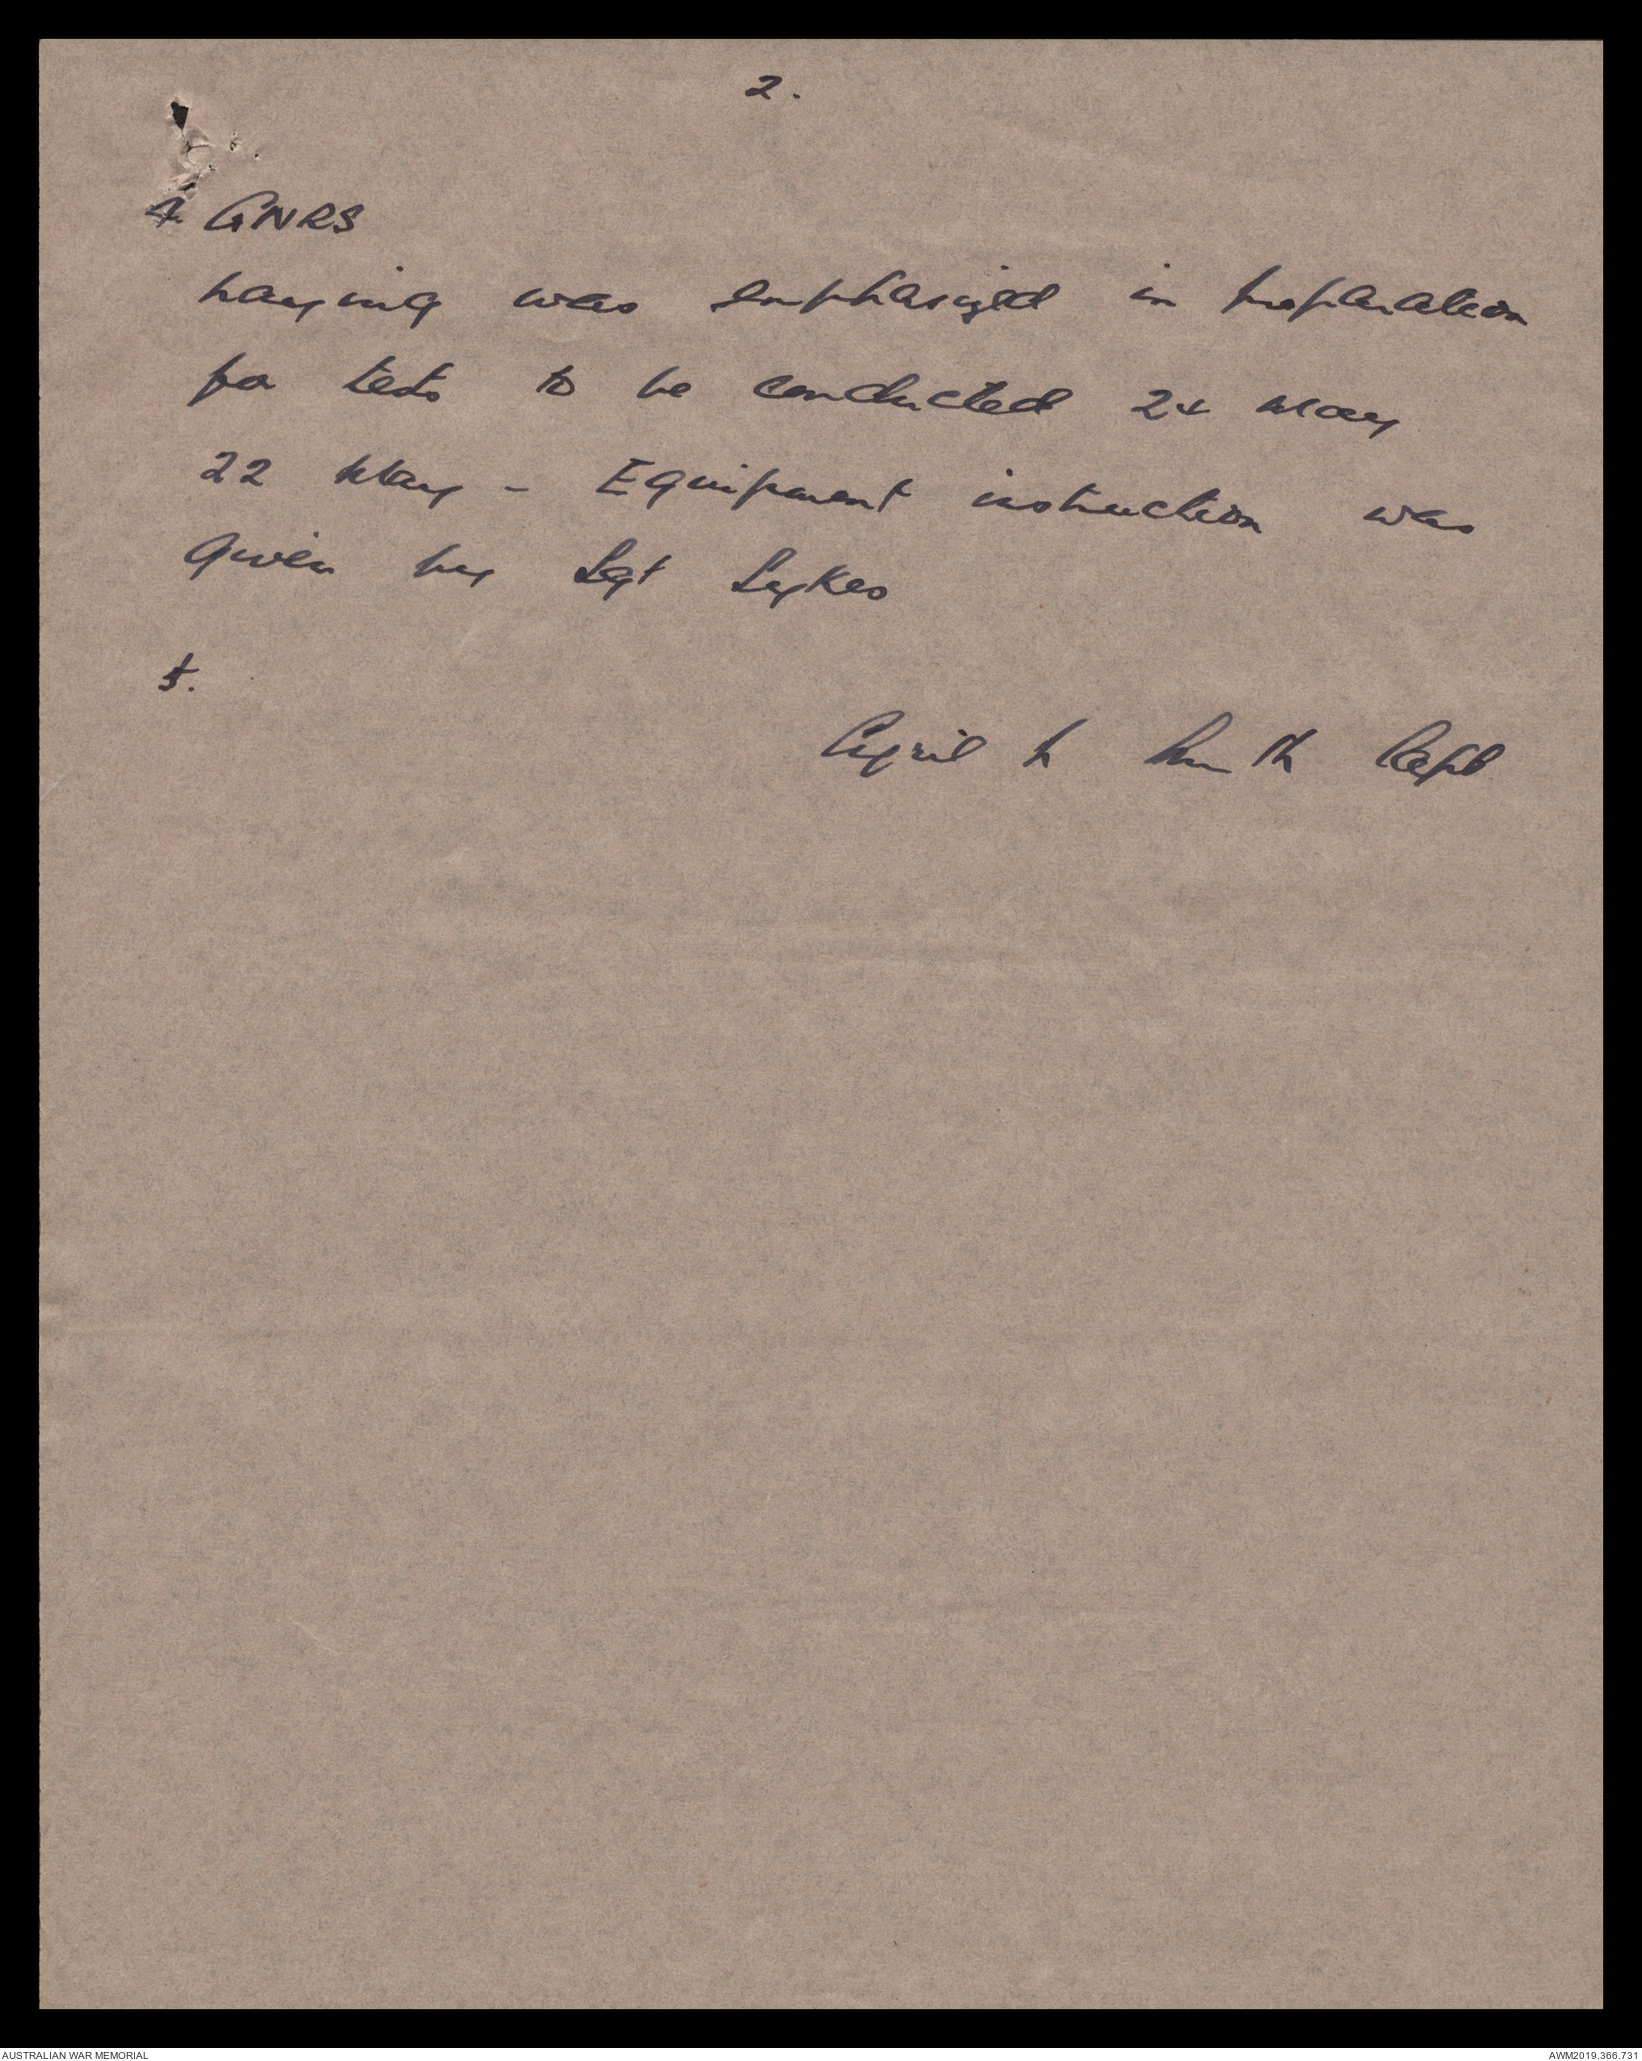 2.
4. GNRS
Laying was emphasized in preparation
for tests to be conducted 24 May
22 May - Equipment instruction was
given by Sgt Sykes
5.
Capt
AUSTRALIAN WAR MEMORIAL
AWM2019.366.731